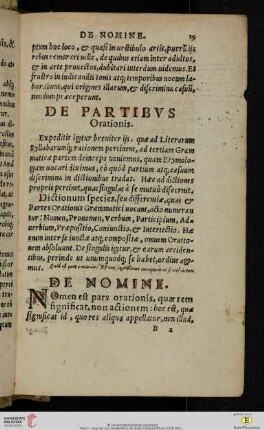 DE NOMINE. 19
ptum hoc loco, & quasi in uestibulo artis, pueriliis
rebus remorari uelle, de quibus etiam inter adultos,
& in arte prouectos, dubitari interdum uidemus. Et
frustra in iudicandis tonis atq; temporibus uocum la-
borabunt, qui origines illarum, & discrimina casuū,
nondum praeceperunt.
DE PARTIBVS
Orationis.
Expeditis igitur breuiter ijs, quæ ad Literarum
Syllabarumq; rationem pertinent, ad tertiam Gram
maticæ partem deinceps ueniemus, quam Etymolo-
giam uocari diximus, eò quòd partium atq; casuum
discrimina in dictionibus tradat. Hæc ad dictiones
propriè pertinet, quæ singulæ à se mutuò discernit.
Dictionum species, seu differentiæ, quas &
Partes Orationis Grammatici uocant, octo numeran
tur: Nomen, Pronomen, Verbum, Participium, Ad
uerbium, Præpositio, Coniunctio, & Interiectio. Hæ
enim inter se iunctæ atq; compositæ, omnem Oratio-
nem absoluunt. De singulis igitur, & earum acciden-
tibus, perinde ut unumquodq; se habet, ordine age-
mus.
DE NOMINE.
Nomen est pars orationis, quæ rem
significat, non actionem: hoc est, quæ
significat id, quo res aliqua appellatur, non illud,
B 2